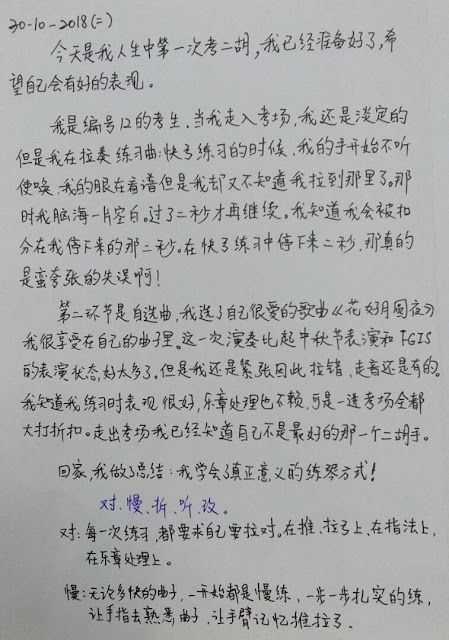 30-10-2018(二)
今天是我人生中第一次考二胡,我已经准备好了,希
望自己会有好的表现。
我是编号12的考生.当我走入考场,我还是淡定的
但是我在拉奏练习曲:快弓练习的时候,我的手开始不听
使唤.我的眼在看谱但是我却又不知道我拉到那里了。那
时我脑海一片空白。过了二秒才再继续。我知道我会被扣
分在我停下来的那二秒。在快弓练习中停下来二秒,那真的
是蛮夸张的失误啊!
第二环节是自选曲,我选了自己很爱的歌曲《花好月圆夜》
我很享受在自己的曲子里。这一次演奏比起中秋节表演和FGIS
的表演状态,好太多了。但是我还是紧张因此拉错、走音还是有的。
我知道我练习时表现很好,乐章处理也不赖,可是一进考场全都
大打折扣。走出考场我已经知道自己不是最好的那一个二胡手。
回家,我做了总结:我学会了真正意义的练琴方式!
对、慢、拆、听、改。
对:每一次练习,都要求自己要拉对。在推、拉弓上、在指法上,
在乐章处理上。
慢:无论多快的曲子,一开始都是慢练,一步一步扎实的练,
让手指去熟悉曲子,让手臂记忆推拉弓.